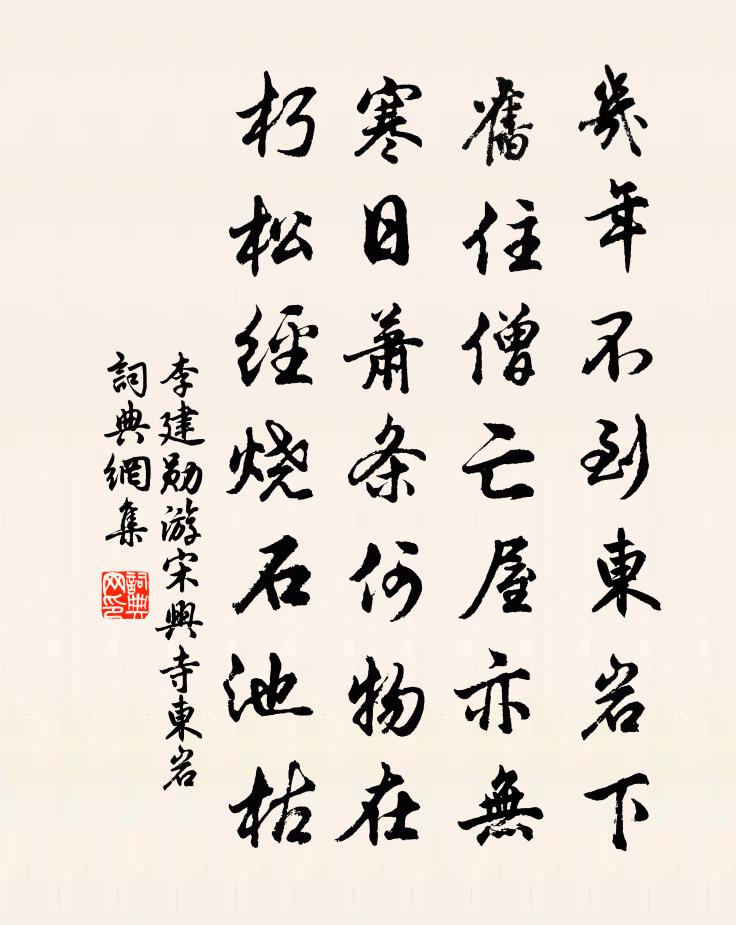 幾年不到東岩下
舊住僧亡屋亦無
寒日蕭条何物在
朽松經烧石池枯
李建勋游宋興寺東岩
詞典網集
詞典網印